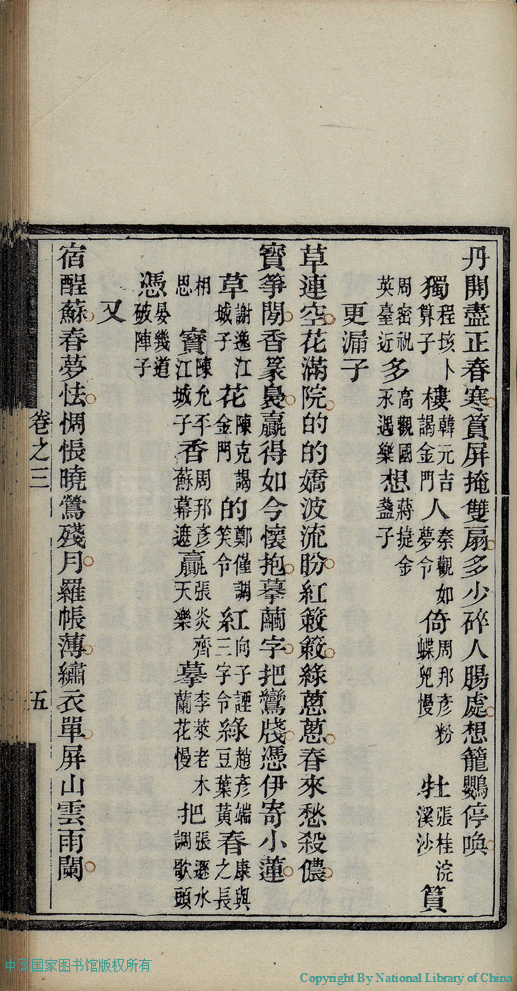 丹開盡正春寒篔屏掩雙扇多少碎人腸處想籠鸚停喚
獨程垓卜算子樓韓元吉謁金門人秦觀如夢令倚周邦彥粉蝶兒慢牡張桂浣溪沙篔
周密祝英臺近多高觀國永遇樂想蔣捷金盞子
更漏子
草連空花滿院的的嬌波流盼紅簌簌綠蔥蔥春來愁殺儂
寶箏閒香篆裊贏得如今懷抱摹繭字把鸞牋憑伊寄小蓮
草謝逸江城子花陳克謁金門的鄭僅調笑令紅向子諲三字令綠趙彥端豆葉黃春康與之長
相思寶陳允平江城子香周邦彥蘇幕遮贏張炎齊天樂摹李萊老木蘭花慢把張遜水調歌頭
憑晏幾道破陣子
又
宿酲蘇春夢怯惆悵曉鶯殘月羅帳薄繡衣單屏山雲雨闌
卷之三 五
中国国家图书馆版权所有
Copyright By National Library of China